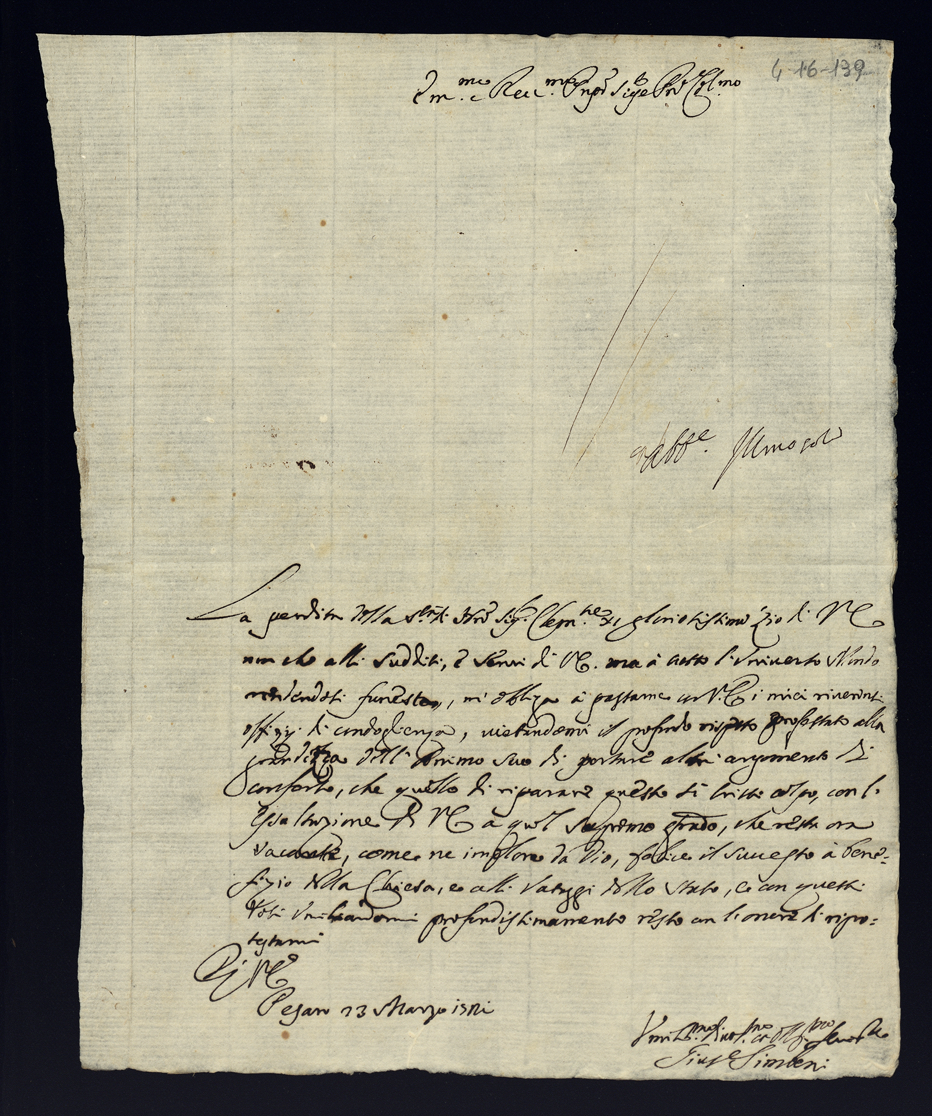 4-16-139
Em.mo e Rev.mo
Abb.e
La perdita della S.tà di Clem.te XI gloriosissimo Zio di VE
non che alli sudditi, e servi di VE. ma à tutto l'Universo Mondo
rendendosi funesta, mi obliga à passarne con VE i miei riverenti
offizi di condoglienza, vietandomi il profondo rispetto professato alla
grandezza dell'Animo suo di portare altri argomenti di
conforto, che quello di riparare questo sì tristo colpo, con l'
Esaltazione di VE à quel supremo grado, che resta ora
vacante, come ne imploro da Dio, felice il successo à bene-
fizio della Chiesa, e alli Vataggi dello Stato, e con questi
Voti umiliandomi profondissimamente resto con l'onore di ripro-
testarmi
Di VE
Pesaro 23 Marzo